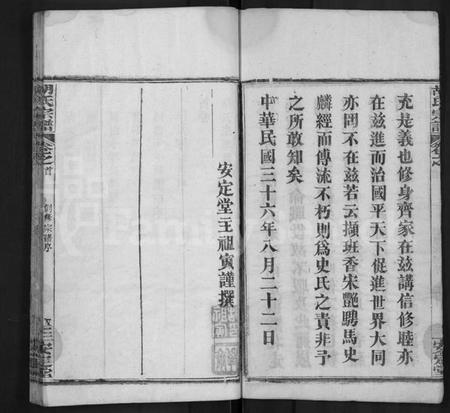 胡氏宗譜
充是義也修身齊家在茲講信修睦亦
在茲進而治國平天下促進世界大同
亦罔不在茲若云擷班香宋艷騁馬史
麟經而傳流不朽則為史氏之責非予
之所敢知矣
中華民國三十六年八月二十二日
安定堂二主祖寅謹撰
胡氏宗譜
卷之首
創修宗譜序
安定堂